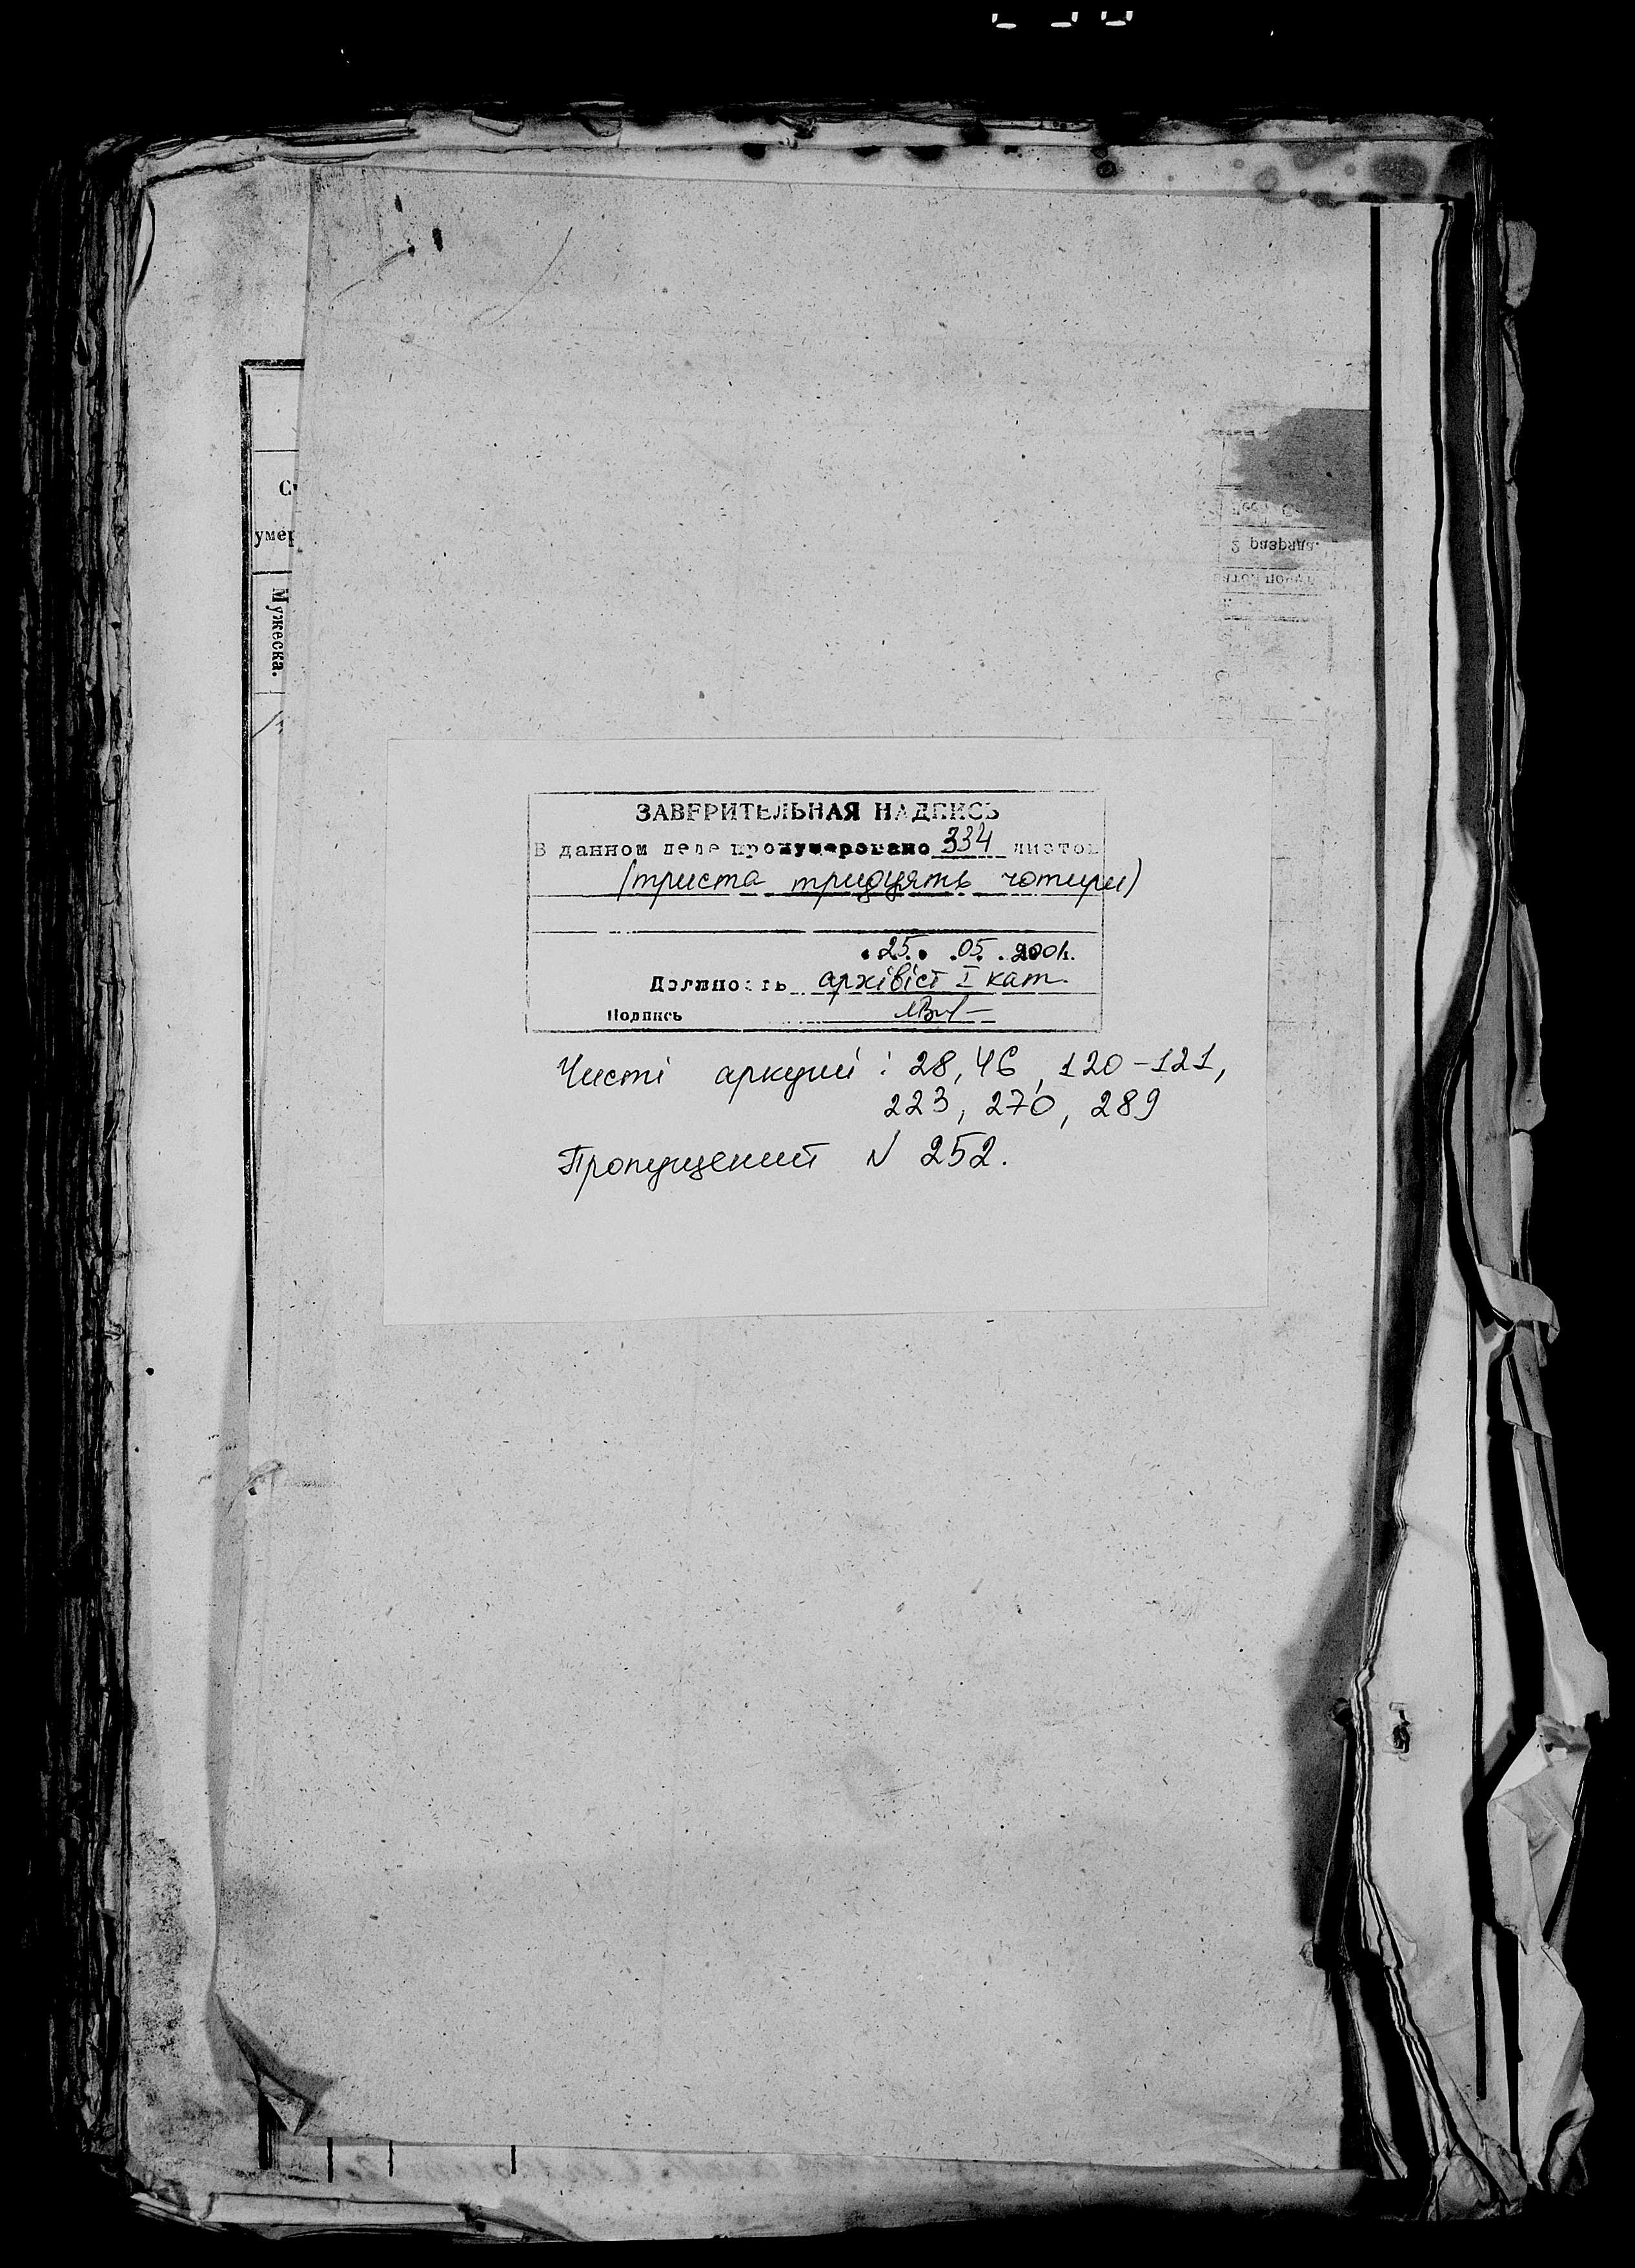 умер
Мужеска.
2 разряда.
ЗАВЕРИТЕЛЬНАЯ НАДПИСЬ
В данном деле пронумеровано 334 листов
(триста тридцять чотири)
"25" .05. 2001.
Должность архівіст І кат.
Подпись
Чисті аркуші: 28, 46, 120-121,
223, 270, 289
Пропущений N 252.